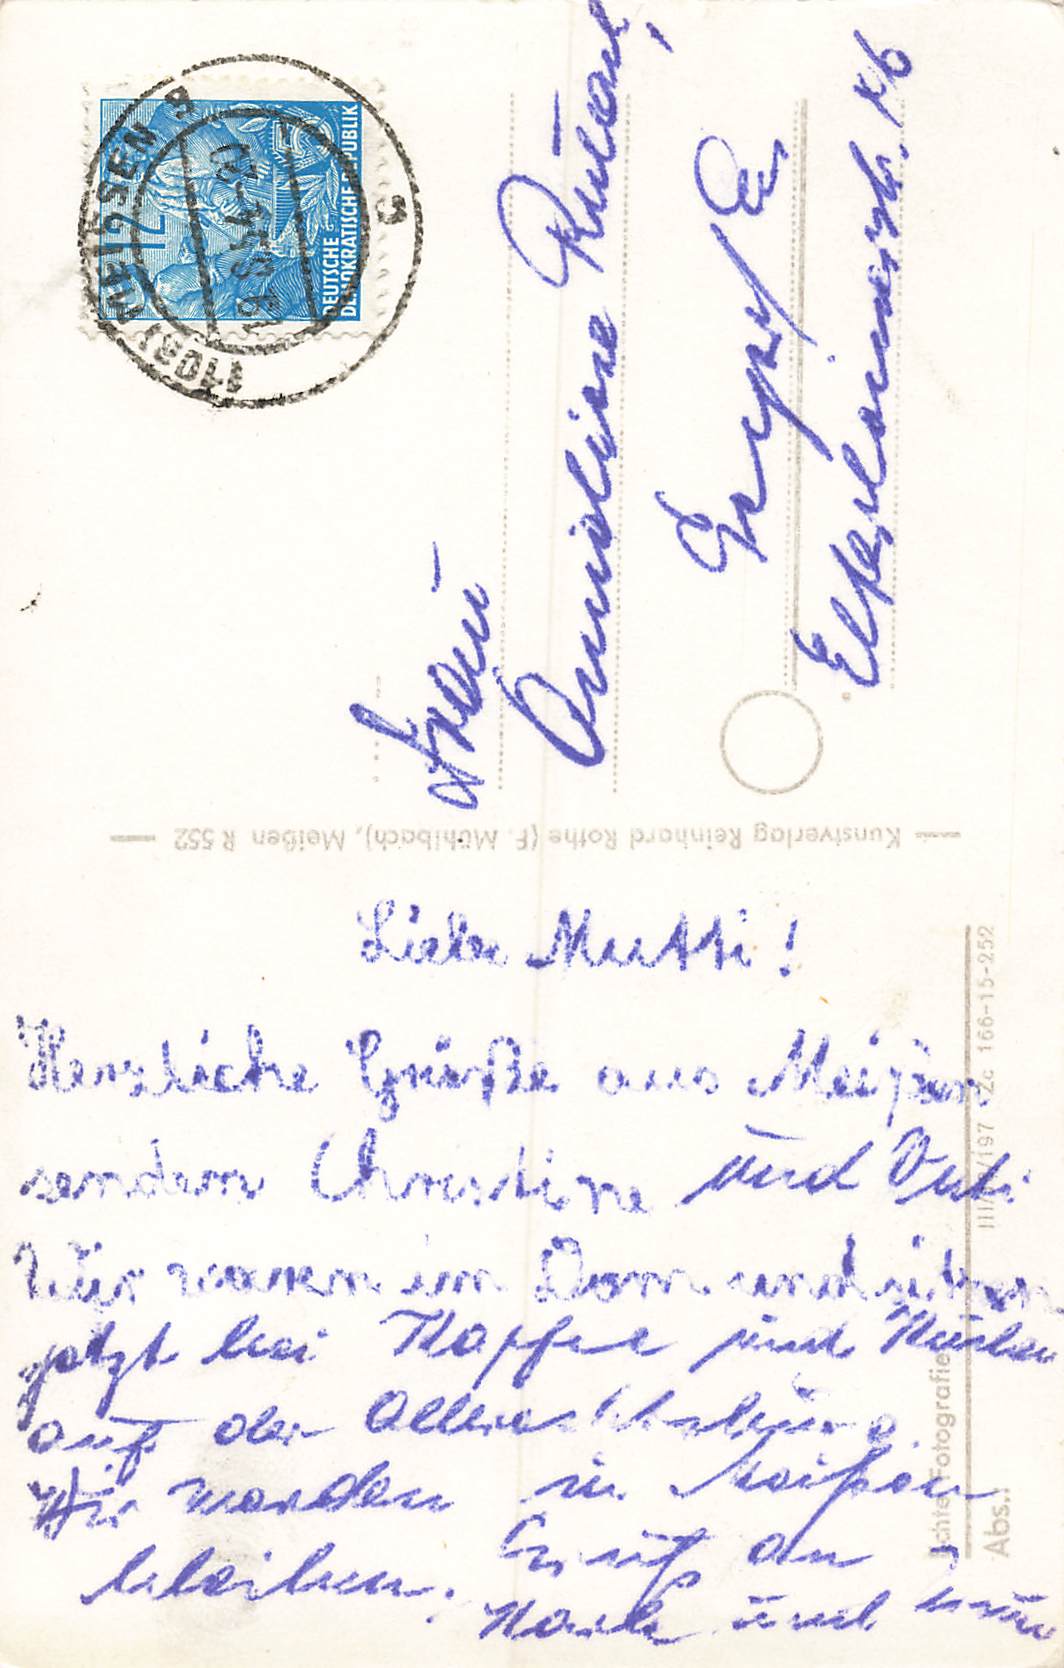 Liebe Mutti!
Herzliche Grüße aus Meißen
senden Christine und
Wir waren im Dom und sitzen
jetzt bei Kaffee und Kuchen
auf der Albrechtsburg.
Wir werden in Meißen
bleiben. Gruß an
und
Frau
Anneliese
Elfer
(10a) MEISSEN 3
19.8.54
12
DEUTSCHE
DEMOKRATISCHE REPUBLIK
Kunstverlag Reinhard Rothe (F. Mühlbach), Meißen R 552
Zc 166-15-252
Echte Fotografie
Abs.: